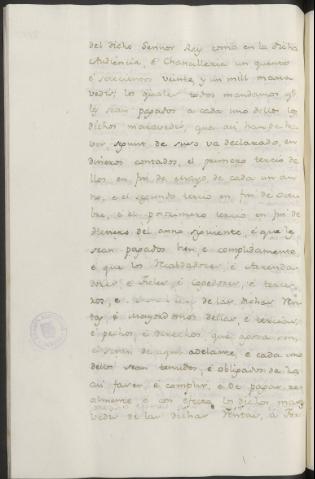 del dicho Sennor Rey como en la dicha
Audiencia, é Chancilleria un quento
é seiscientos veinte, y un mill marav
vedis; los quales todos mandamos q̃
les sean pagados a cada uno dellos los
dichos maravedis, que asi han de ha
ver segunt de suso va declarado, en
dineros contados, el primero tercio de
llos en fin de mayo de cada un an
no, e el segundo tercio en fin de
é el postrimero tercio en fin de
Dienero del anno siguiente, é que les
sean pagados bien, e complidamente,
e que los Recabdadores, é Arrenda
dores é Fieles, é Cogedores, é tercer
ros, e de las dichas Ren
tas é Mayordomos dellas, é tercias,
é pechos, é derechos que agora son,
é seran de aqui adelante, e cada uno
dellos sean tenudos, é obligados de lo
asi facer, é complir, e de pagar, re
almente, e con efecto, los dichos mara
vedis de las dichas Rentas, á